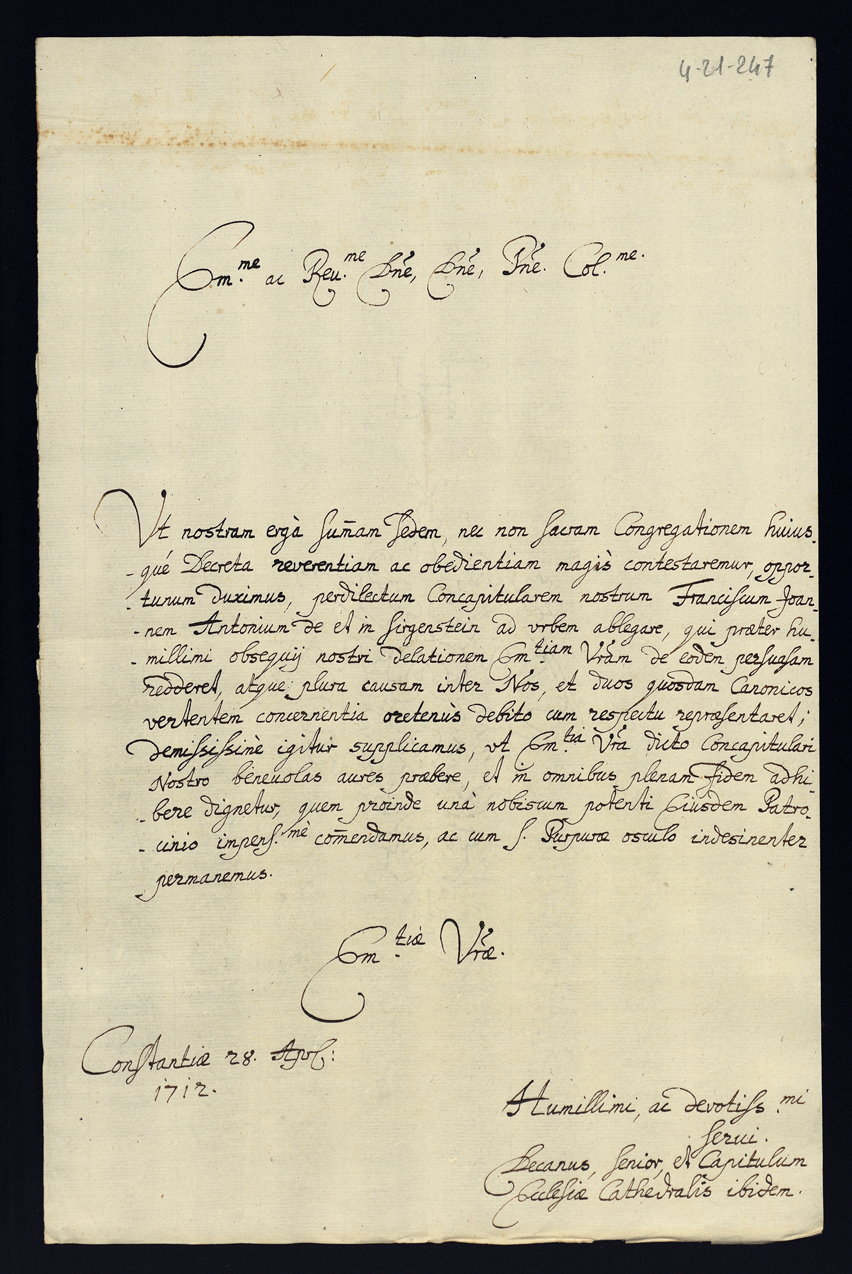 4-21-247
Em.me ac Reu.me Dñe, Dñe, Pñe. Col.me.
Vt nostram ergà Sum̃am Sedem, nec non Sacram Congregationem huius-
-qué Decreta reverentiam ac obedientiam magis contestaremur, oppor-
-tunum duximus, perdilectum Concapitularem nostrum Franciscum Joan-
-nem Antonium de et in Sirgenstein ad vrbem ablegare, qui præter hu-
-millimi obsequij nostri delationem Em.tiam Vr̃am de eodem persuasam
redderet, atque plura causam inter Nos, et duos quosdam Canonicos
vertentem concernentia oretenus debito cum respectu repræsentaret;
demississimè igitur supplicamus, vt Em.tia Vr̃a dicto Concapitulari
Nostro beneuolas aures præbere, et in omnibus plenam fidem adhi-
-bere dignetur, quem proinde unà nobiscum potenti Eiusdem Patro-
-cinio impens.mè com̃endamus, ac cum S. Purpuræ osculo indesinenter
permanemus.
Em.tiæ Vr̃æ.
Constantiæ 28. Apr̃l:
1712.
Humillimi, ac devotiss.mi
serui.
Decanus, Senior, et Capitulum
Ecclesiæ Cathedralis ibidem.